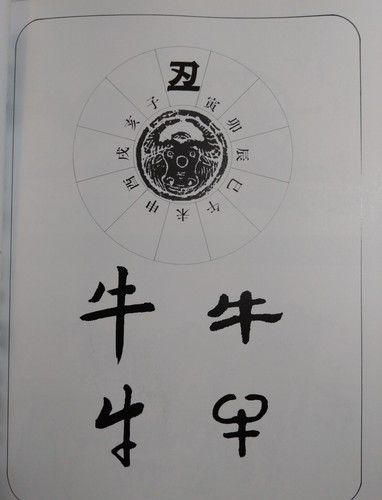 丑
寅
卯
辰
巳
午
未
申
酉
戌
亥
子
牛 牛
牛 牛